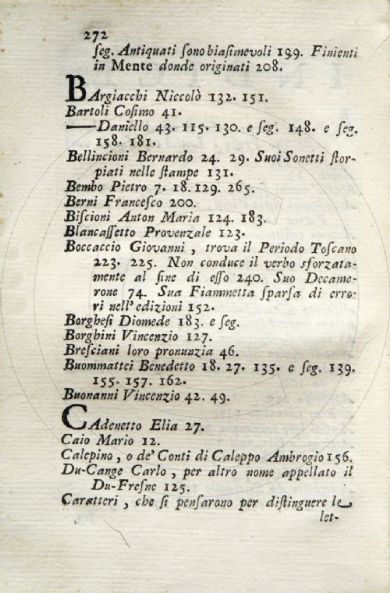 272
ſeg. Antiquati ſono biaſimevoli 199. Finienti
in Mente donde originati 208.
BArgiacchi Niccolò 132. 151.
Bartoli Coſimo 41.
——Daniello 43. 115. 130. e ſeg. 148. e ſeg.
158. 181.
Bellincioni Bernardo 24. 29. Suoi Sonetti ſtor-
piati nelle ſtampe 131.
Bembo Pietro 7. 18. 129. 265.
Berni Franceſco 200.
Biſcioni Anton Maria 124. 183.
Blancaſſetto Provenzale 123.
Boccaccio Giovanni, trova il Periodo Toſcano
223. 225. Non conduce il verbo sforzata-
mente al fine di eſſo 240. Suo Decame-
rone 74. Sua Fiammetta ſparſa di erro-
ri nell'edizioni 152.
Borgheſi Diomede 183. e ſeg.
Borghini Vincenzio 127.
Breſciani loro pronunzia 46.
Buommattei Benedetto 18. 27. 135. e ſeg. 139.
155. 157. 162.
Buonanni Vincenzio 42. 49.
CAdenetto Elia 27.
Caio Mario 12.
Calepino, o de' Conti di Caleppo Ambrogio 156.
Du-Cange Carlo, per altro nome appellato il
Du-Freſne 125.
Caratteri, che ſi penſarono per diſtinguere le
let-